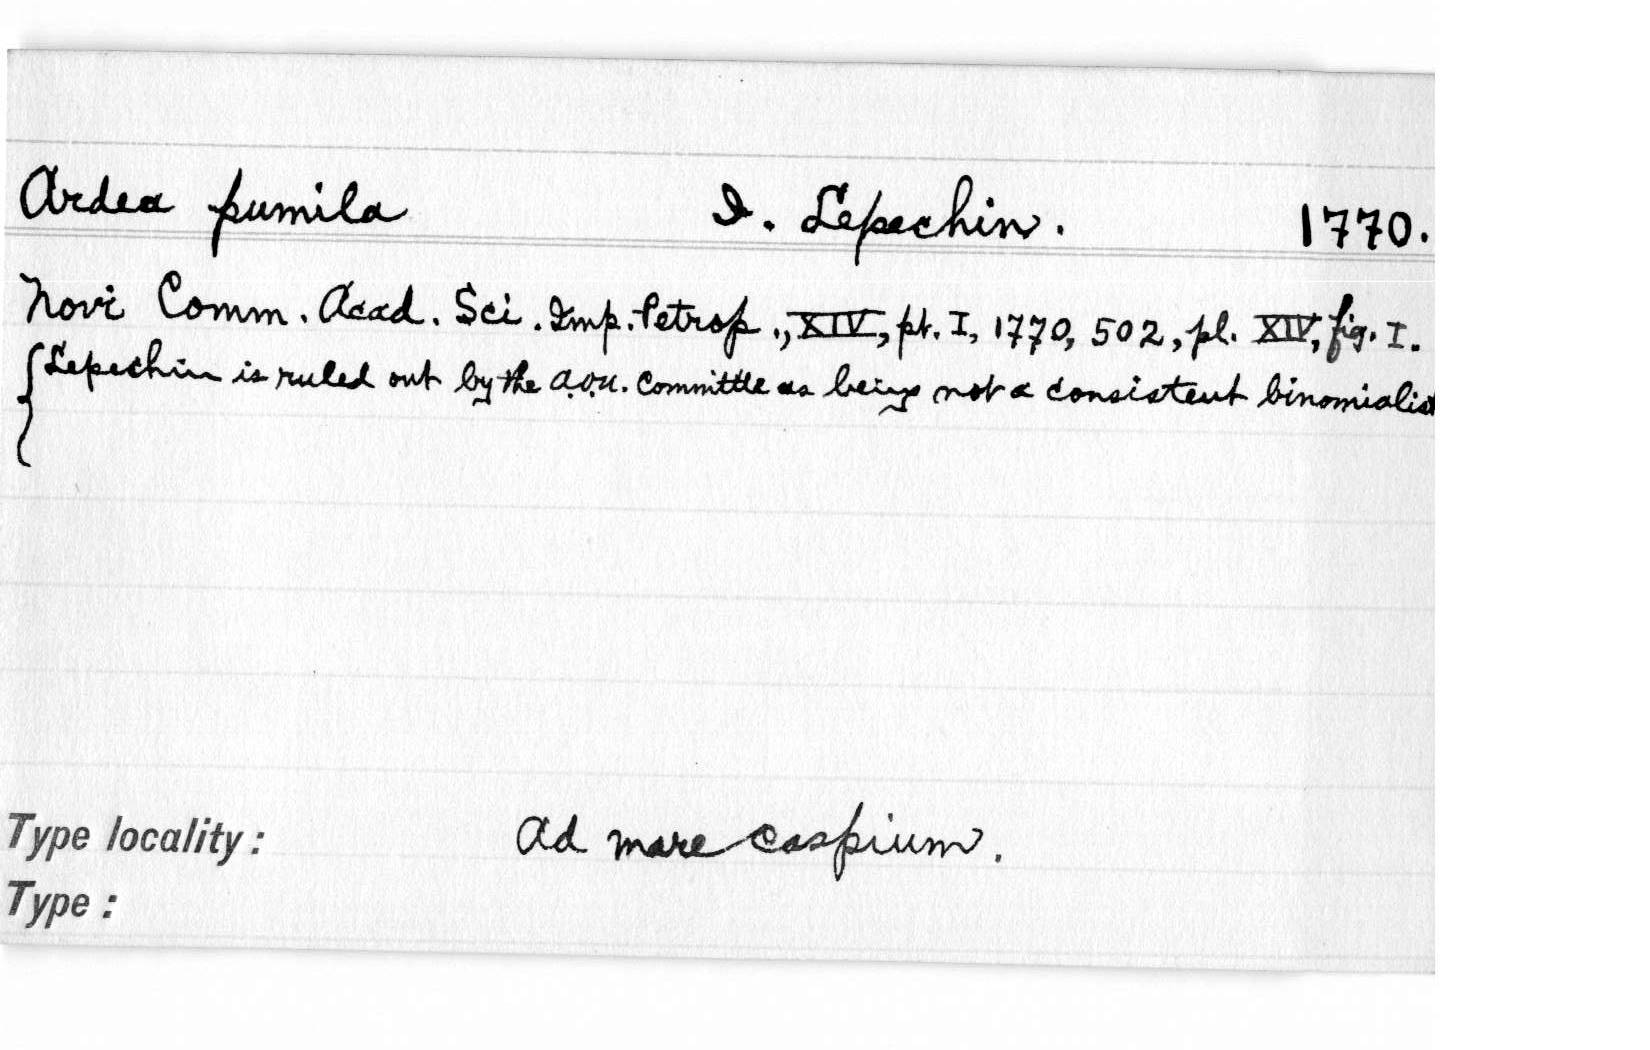 Ardea pumila I. Lepechin. 1770.
Novi Comm. Acad. Sci. Imp. Petrop., XIV, pt. I, 1770, 502, pl. XIV, fig. I.
{Lepechin is ruled out by the A.O.U. Committee as being not a consistent binomialist
Type locality: Ad mare caspium.
Type: